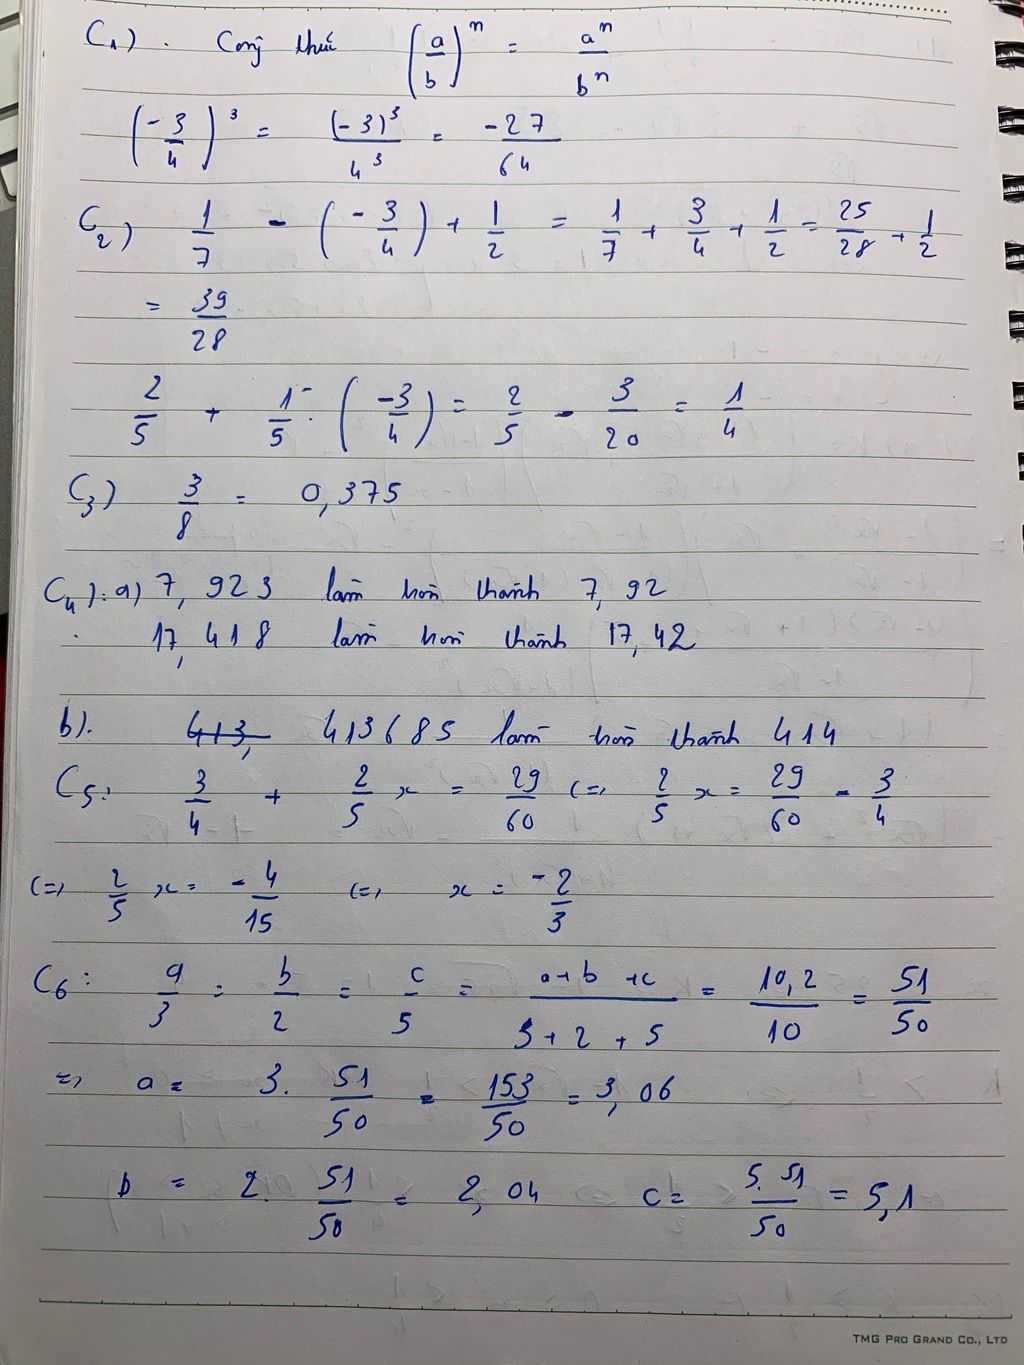 C1) . Công thức (a/b)^n = a^n/b^n
(-3/4)^3 = (-3)^3/4^3 = -27/64
C2) 1/7 - (-3/4) + 1/2 = 1/7 + 3/4 + 1/2 = 25/28 + 1/2
= 39/28
2/5 + 1/5 . (-3/4) = 2/5 - 3/20 = 1/4
C3) 3/8 = 0,375
C4): a) 7,923 làm tròn thành 7,92
17,418 làm tròn thành 17,42
b). 413, 413685 làm tròn thành 414
C5: 3/4 + 2/5 x = 29/60 (=) 2/5 x = 29/60 - 3/4
(=) 2/5 x = -4/15 (=) x = -2/3
C6: a/3 = b/2 = c/5 = (a+b+c)/(3+2+5) = 10,2/10 = 51/50
=) a = 3. 51/50 = 153/50 = 3,06
b = 2. 51/50 = 2,04 c = 5.51/50 = 5,1
TMG PRO GRAND CO., LTD